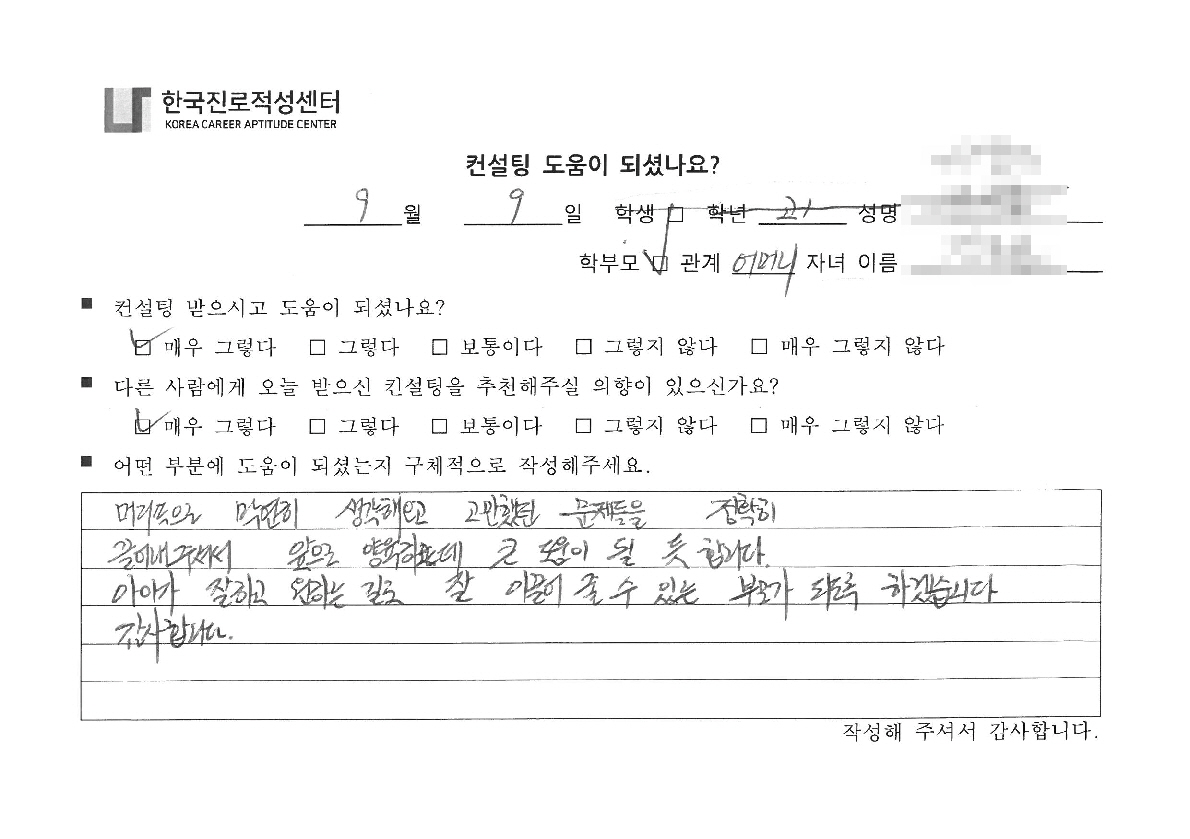 한국진로적성센터
KOREA CAREER APTITUDE CENTER
컨설팅 도움이 되셨나요?
9월 9일 학생 □ 학년 고1 성명
학부모 □ 관계 어머니 자녀 이름
■ 컨설팅 받으시고 도움이 되셨나요?
□ 매우 그렇다 □ 그렇다 □ 보통이다 □ 그렇지 않다 □ 매우 그렇지 않다
■ 다른 사람에게 오늘 받으신 컨설팅을 추천해주실 의향이 있으신가요?
□ 매우 그렇다 □ 그렇다 □ 보통이다 □ 그렇지 않다 □ 매우 그렇지 않다
■ 어떤 부분에 도움이 되셨는지 구체적으로 작성해주세요.
막연히 생각해왔고 고민했던 문제들을 정확히
끌어내주셔서 앞으로 양육하는데 큰 도움이 될 듯 합니다.
아이가 잘하고 원하는 길로 잘 이끌어 줄 수 있는 부모가 되도록 하겠습니다
감사합니다.
작성해 주셔서 감사합니다.